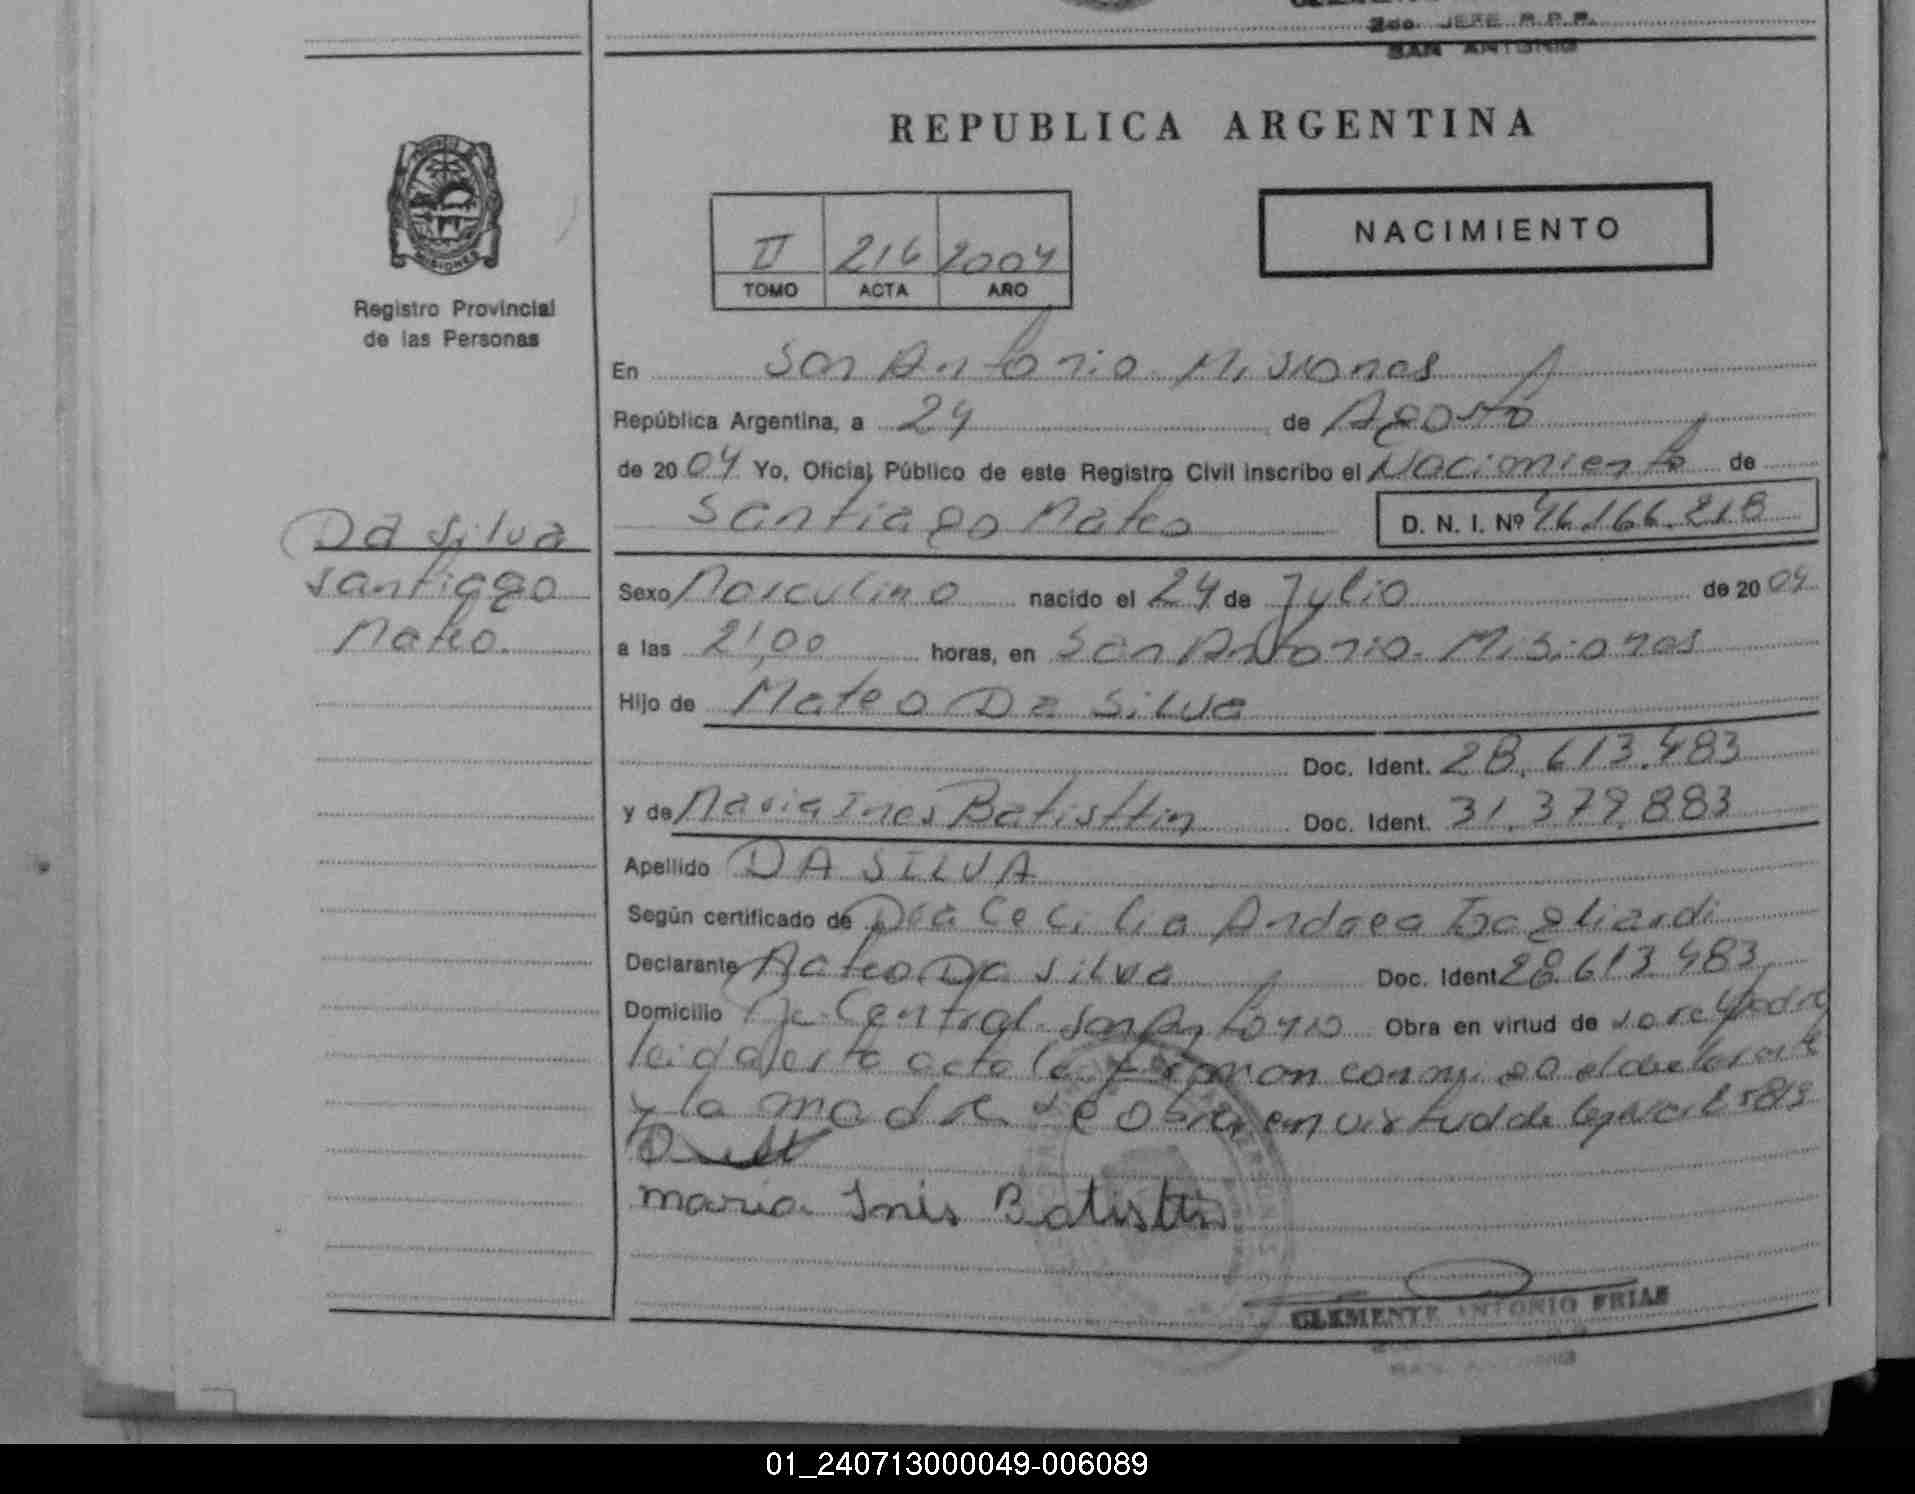 2do. JEFE R.P.P.
SAN ANTONIO
REPUBLICA ARGENTINA
MISIONES
Registro Provincial
de las Personas
II 216 2004
TOMO ACTA AÑO
NACIMIENTO
En San Antonio Misiones
República Argentina, a 24 de Agosto
de 2004 Yo, Oficial Público de este Registro Civil inscribo el Nacimiento de
Santiago Mateo D. N. I. Nº 46.166.218
Da Silva
Santiago
Mateo.
Sexo Masculino nacido el 24 de Julio de 2004
a las 21,00 horas, en San Antonio. Misiones
Hijo de Mateo Da Silva
Doc. Ident. 28.613.483
y de Maria Ines Batisttin Doc. Ident. 31.379.883
Apellido DA SILVA
Según certificado de Dra Cecilia Andrea Tagliardi
Declarante Mateo Da Silva Doc. Ident. 28.613.483
Domicilio Central San Antonio Obra en virtud de ser el padre
leida esta acta la firman conmigo el declarante
y la madre se obra en virtud de
maria Inis Batisttin
CLEMENTE ANTONIO FRIAS
SAN ANTONIO
01_240713000049-006089